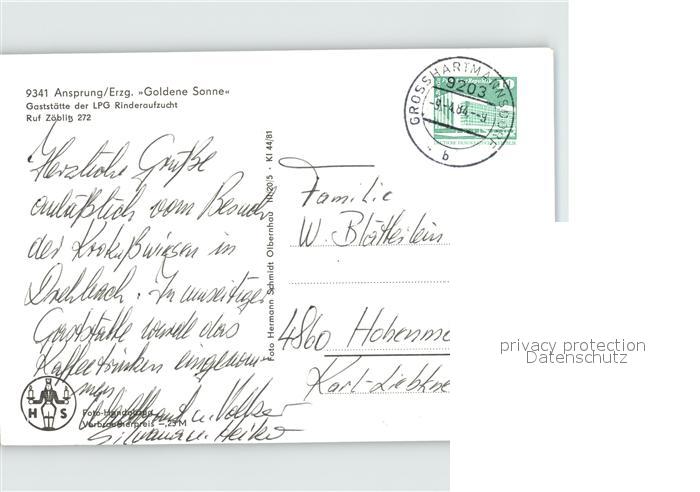 9341 Ansprung/Erzg. »Goldene Sonne«
Gaststätte der LPG Rinderaufzucht
Ruf Zöblitz 272
Herzliche Grüße
anläßlich vom Besuch
der Krokußwiesen in
Drehbach. In umseitiger
Gaststätte wurde das
Kaffeetrinken eingenom-
men
u. Volker
Silvana u. Heiko
H S
Foto-Handabzug
Verbraucherpreis -,25 M
Foto Hermann Schmidt Olbernhau III/20/5 · Kl 44/81
GROSSHARTMANNSDORF
9203
-9.-4.84.--9
b
Familie
W. Blättelein
4860 Hohenmö
Karl-Liebkne
privacy protection
Datenschutz